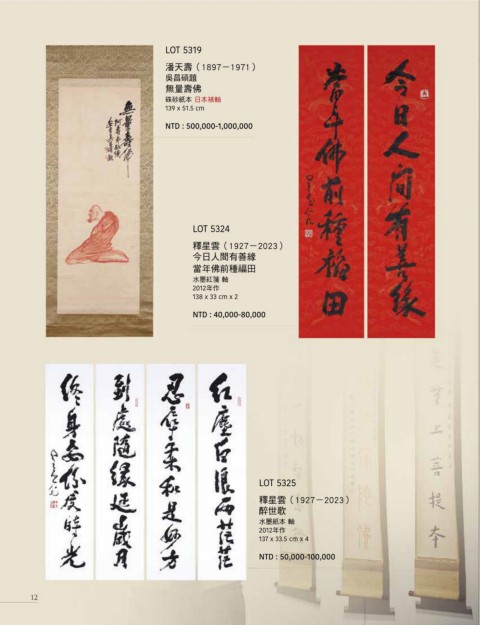 LOT 5319
潘天壽（1897－1971）
吳昌碩題
無量壽佛
硃砂紙本 日本裱軸
139 x 51.5 cm
NTD : 500,000-1,000,000
無量壽佛
今日人間有善緣
當年佛前種福田
LOT 5324
釋星雲（1927－2023）
今日人間有善緣
當年佛前種福田
水墨紅箋 軸
2012年作
138 x 33 cm x 2
NTD : 40,000-80,000
紅塵白浪兩茫茫
忍辱柔和是妙方
到處隨緣延歲月
終身安份度時光
LOT 5325
釋星雲（1927－2023）
醉世歌
水墨紙本 軸
2012年作
137 x 33.5 cm x 4
NTD : 50,000-100,000
上菩提本
12